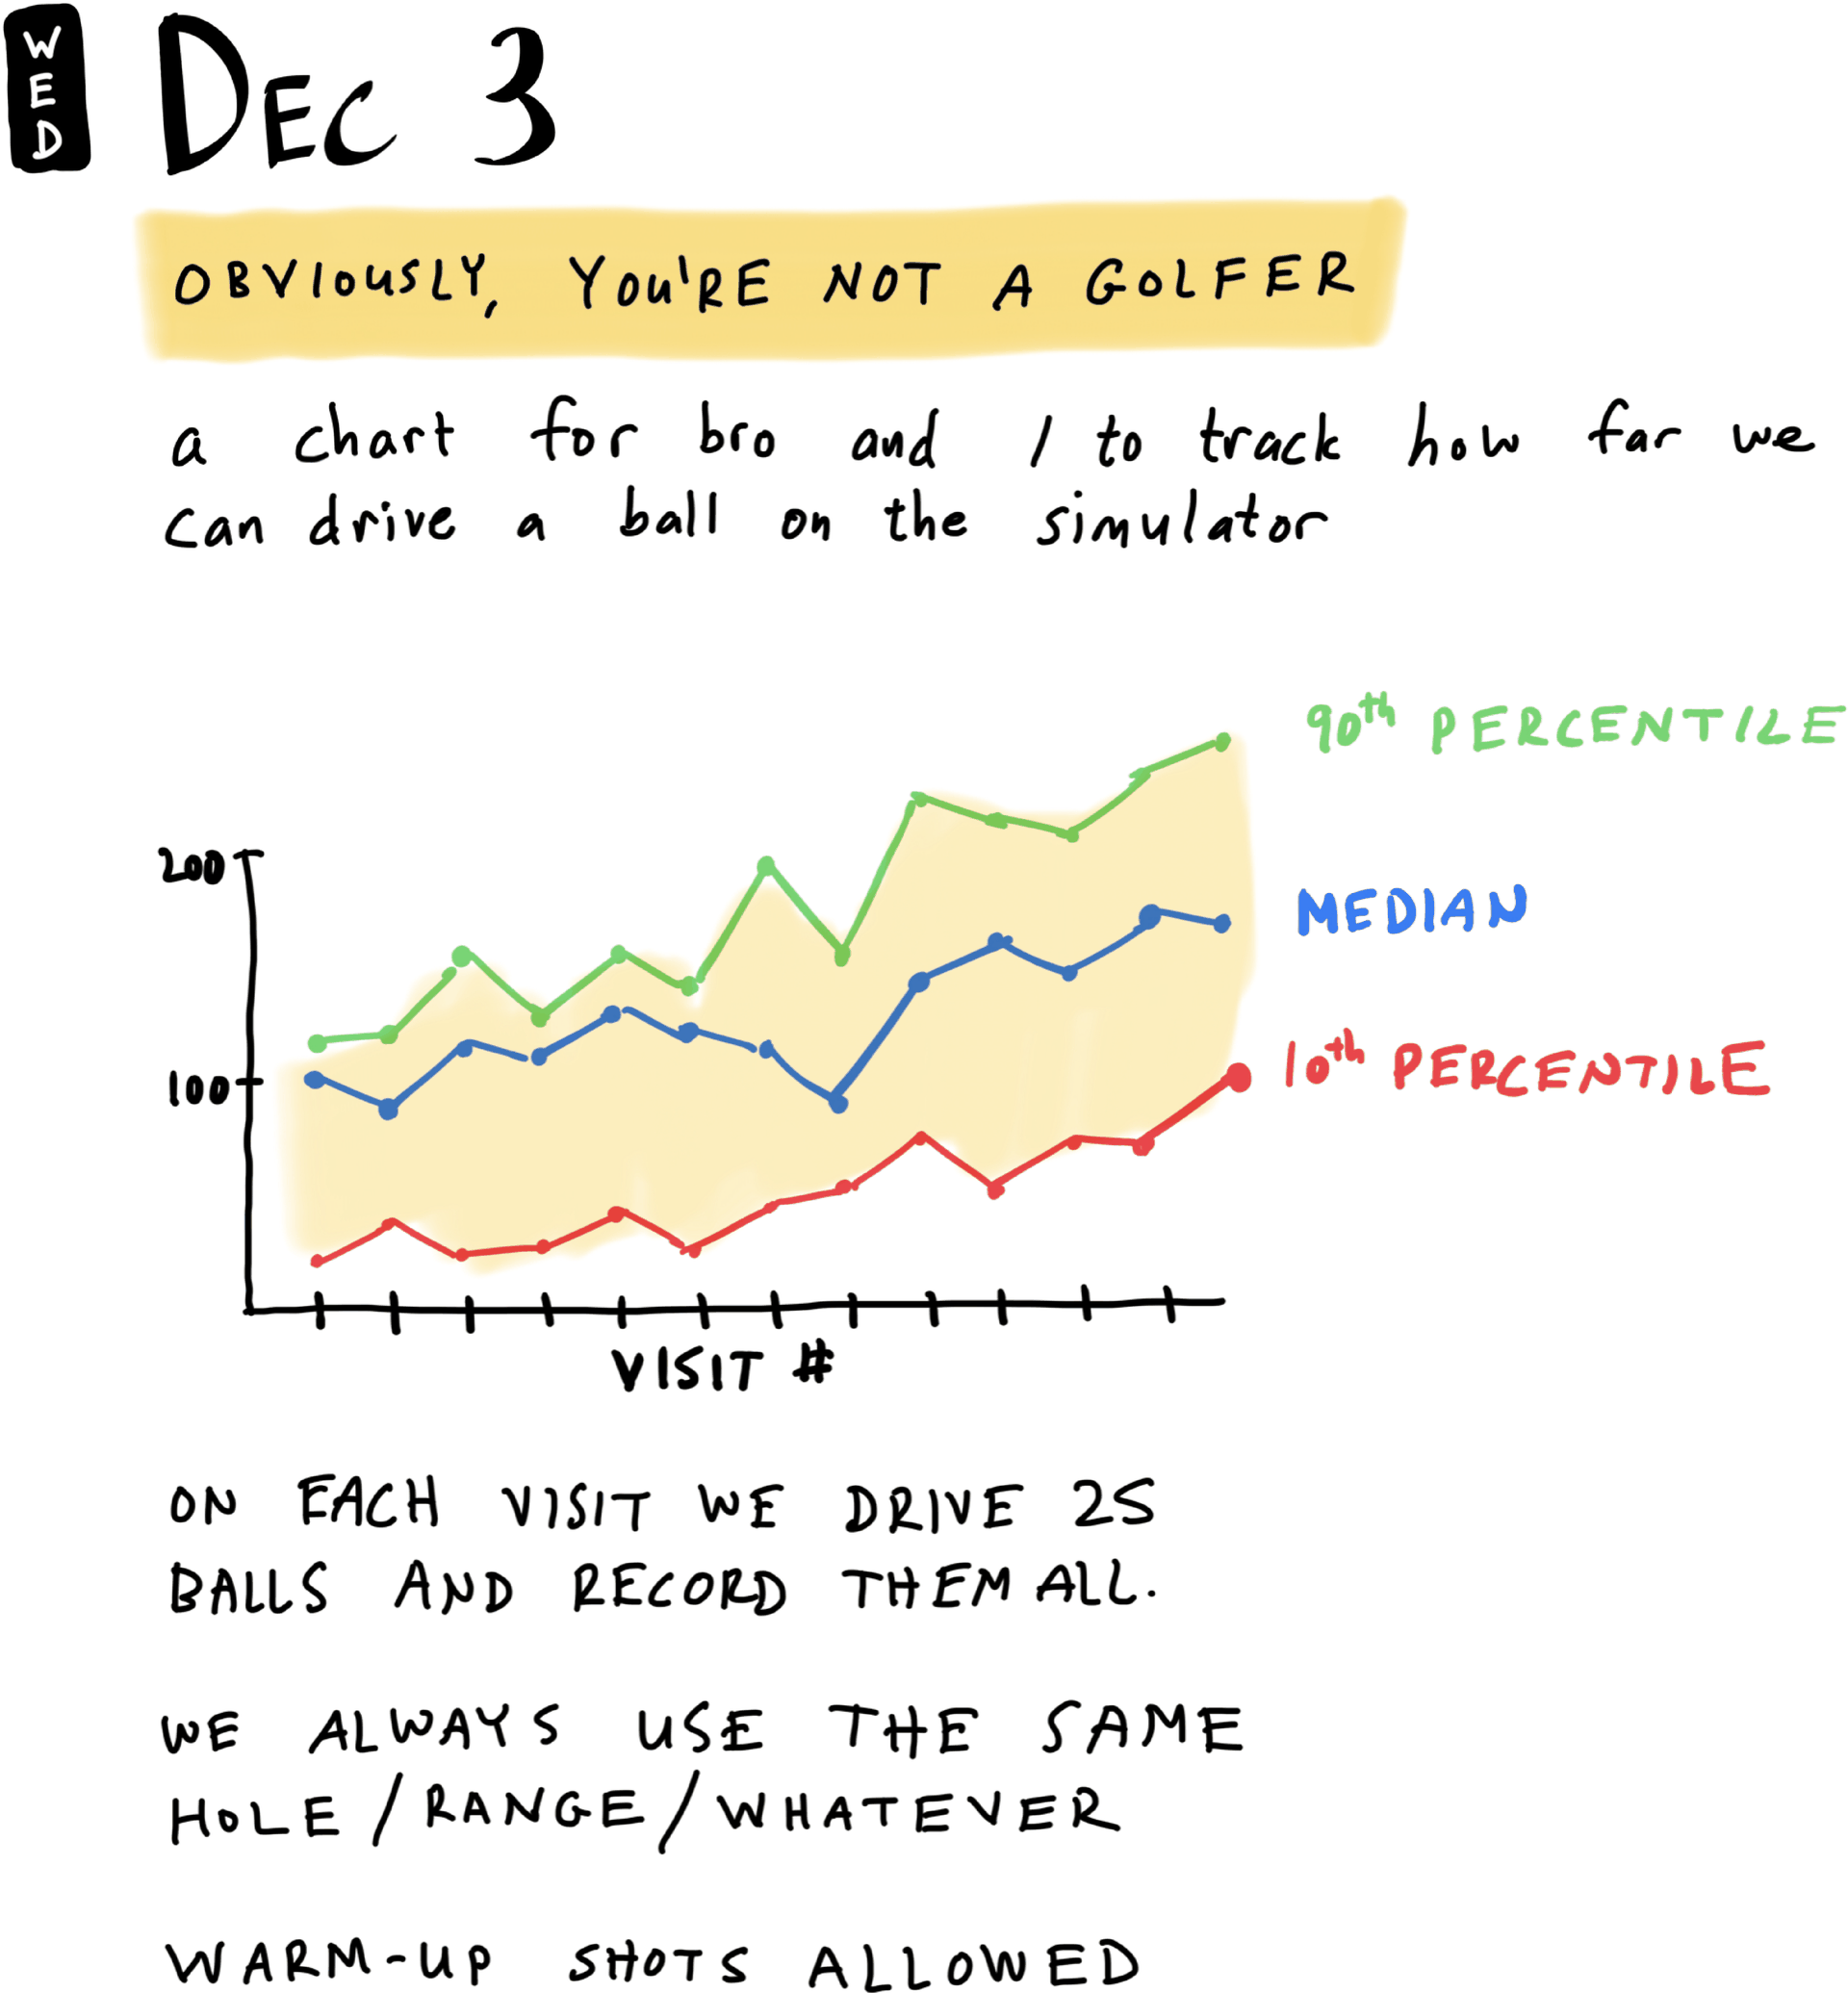 WED
DEC 3
OBVIOUSLY, YOU'RE NOT A GOLFER
a chart for bro and I to track how far we
can drive a ball on the simulator
90th PERCENTILE
200
MEDIAN
10th PERCENTILE
100
VISIT #
ON EACH VISIT WE DRIVE 25
BALLS AND RECORD THEM ALL.
WE ALWAYS USE THE SAME
HOLE/RANGE/WHATEVER
WARM-UP SHOTS ALLOWED